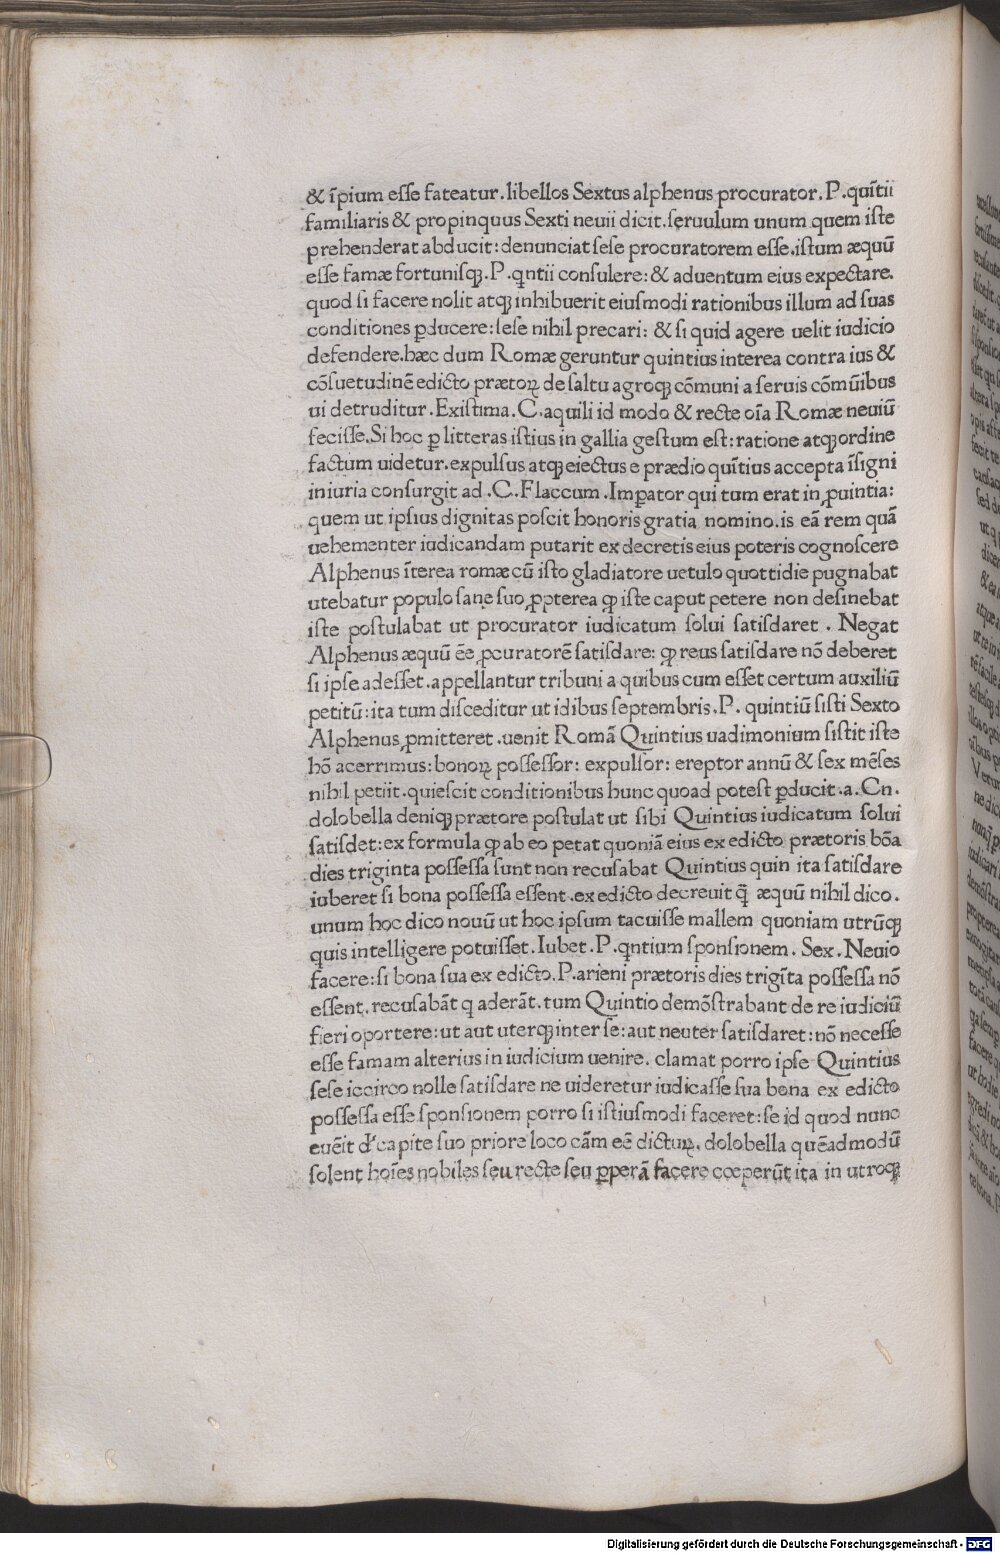 & īpium eſſe fateatur.libellos Sextus alphenus procurator.P.quītii
familiaris & propinquus Sexti neuii dicit.ſeruulum unum quem iſte
prehenderat abducit:denunciat ſeſe procuratorem eſſe.iſtum æquū
eſſe famæ fortuniſqꝫ.P.qntii conſulere:& aduentum eius expectare.
quod ſi facere nolit atqꝫ inhibuerit eiuſmodi rationibus illum ad ſuas
conditiones ꝑducere:ſeſe nihil precari: & ſi quid agere uelit iudicio
defendere.hæc dum Romæ geruntur quintius interea contra ius &
cōſuetudinē edicto prætoꝝ de ſaltu agroqꝫ cōmuni a ſeruis cōmūibus
ui detruditur.Exiſtima.C.aquili id modo & recte oīa Romæ neuiū
feciſſe.Si hoc ꝑ litteras iſtius in gallia geſtum eſt:ratione atqꝫ ordine
factum uidetur.expulſus atqꝫ eiectus e prædio quītius accepta īſigni
iniuria conſurgit ad.C.Flaccum.Impator qui tum erat in ꝓuintia:
quem ut ipſius dignitas poſcit honoris gratia nomino.is eā rem quā
uehementer iudicandam putarit ex decretis eius poteris cognoſcere
Alphenus īterea romæ cū iſto gladiatore uetulo quottidie pugnabat
utebatur populo ſane ſuo ꝓpterea ꝙ iſte caput petere non deſinebat
iſte poſtulabat ut procurator iudicatum ſolui ſatiſdaret . Negat
Alphenus æquū ēe ꝓcuratorē ſatiſdare: ꝙ reus ſatiſdare nō deberet
ſi ipſe adeſſet.appellantur tribuni a quibus cum eſſet certum auxiliū
petitū:ita tum diſceditur ut idibus ſeptembris.P. quintiū ſiſti Sexto
Alphenus ꝓmitteret.uenit Romā Quintius uadimonium ſiſtit iſte
hō acerrimus:bonoꝝ poſſeſſor: expulſor: ereptor annū & ſex mēſes
nihil petiit.quieſcit conditionibus hunc quoad poteſt ꝑducit.a.Cn.
dolobella deniqꝫ prætore poſtulat ut ſibi Quintius iudicatum ſolui
ſatiſdet:ex formula ꝙ ab eo petat quoniā eius ex edicto prætoris bōa
dies triginta poſſeſſa ſunt non recuſabat Quintius quin ita ſatiſdare
iuberet ſi bona poſſeſſa eſſent.ex edicto decreuit q̄ æquū nihil dico.
unum hoc dico nouū ut hoc ipſum tacuiſſe mallem quoniam utrūqꝫ
quis intelligere potuiſſet.Iubet.P.qntium ſponſionem.Sex.Neuio
facere:ſi bona ſua ex edicto.P.arieni prætoris dies trigīta poſſeſſa nō
eſſent.recuſabāt q aderāt.tum Quintio demōſtrabant de re iudiciū
fieri oportere:ut aut uterqꝫ inter ſe:aut neuter ſatiſdaret:nō neceſſe
eſſe famam alterius in iudicium uenire. clamat porro ipſe Quintius
ſeſe iccirco nolle ſatiſdare ne uideretur iudicaſſe ſua bona ex edicto
poſſeſſa eſſe ſponſionem porro ſi iſtiuſmodi faceret:ſe id quod nunc
euēit d' capite ſuo priore loco cām eē dictuꝝ. dolobella quēadmodū
ſolent hoīes nobiles ſeu recte ſeu ꝑperā facere cœperūt ita in utroqꝫ
Digitalisierung gefördert durch die Deutsche Forschungsgemeinschaft - DFG